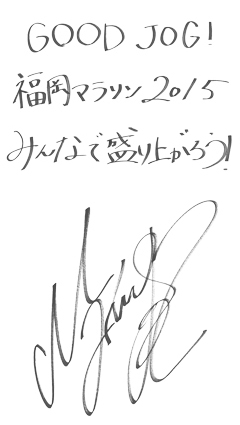 GOOD JOG!
福岡マラソン2015
みんなで盛り上がろう!